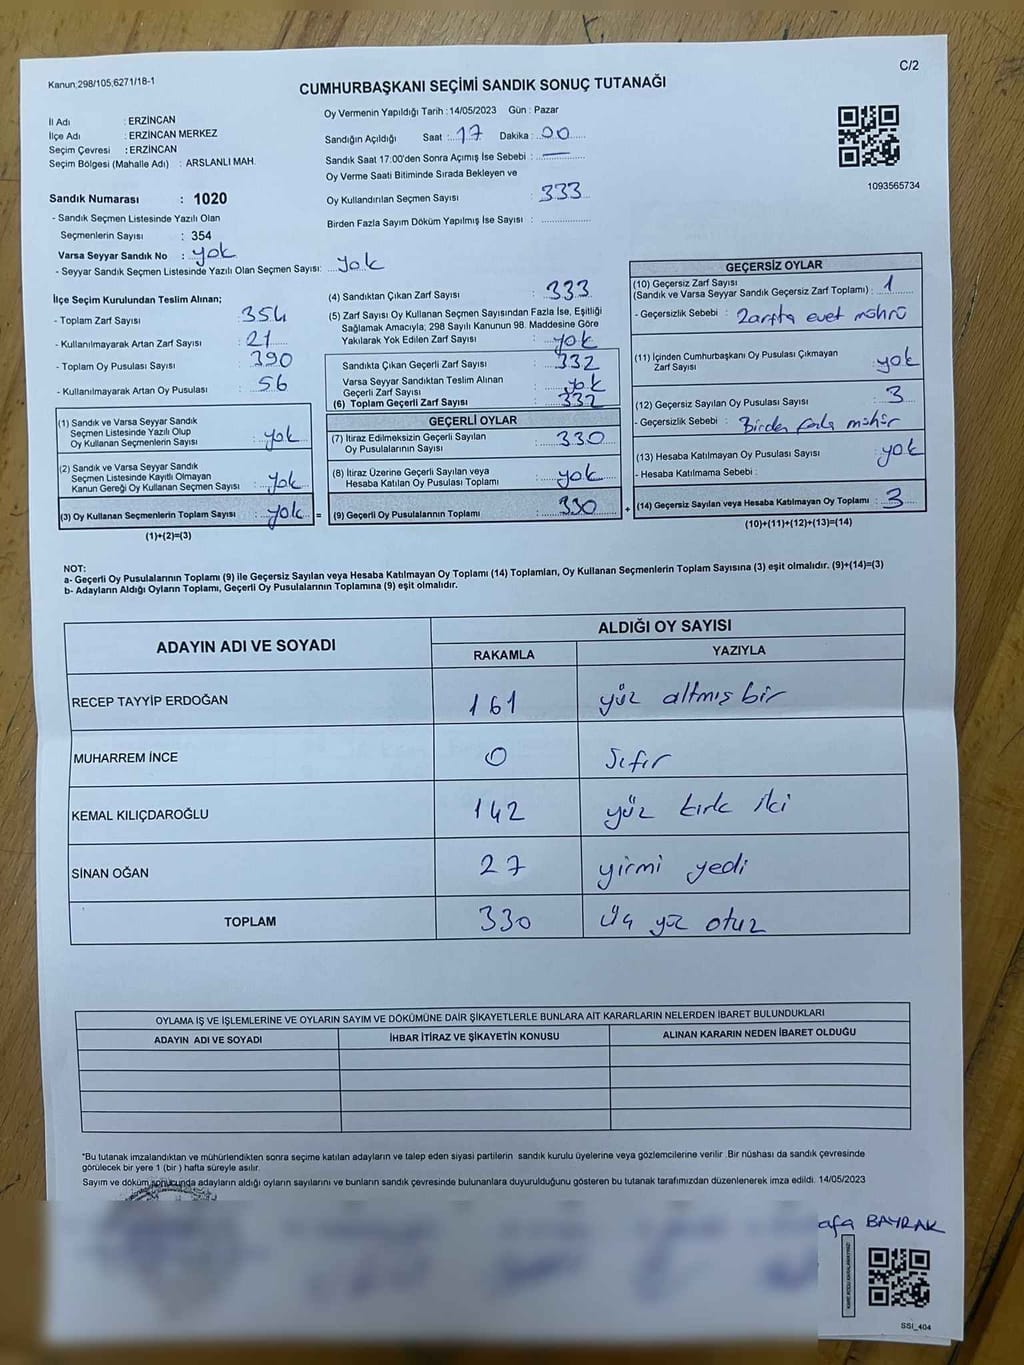 Kanun,298/105,6271/18-1
C/2
CUMHURBAŞKANI SEÇİMİ SANDIK SONUÇ TUTANAĞI
İl Adı : ERZİNCAN
İlçe Adı : ERZİNCAN MERKEZ
Seçim Çevresi : ERZİNCAN
Seçim Bölgesi (Mahalle Adı) : ARSLANLI MAH.
Sandık Numarası : 1020
- Sandık Seçmen Listesinde Yazılı Olan
Seçmenlerin Sayısı : 354
Varsa Seyyar Sandık No : yok
- Seyyar Sandık Seçmen Listesinde Yazılı Olan Seçmen Sayısı: yok
Oy Vermenin Yapıldığı Tarih : 14/05/2023 Gün : Pazar
Sandığın Açıldığı Saat : 17 Dakika : 00
Sandık Saat 17:00'den Sonra Açımış İse Sebebi : —
Oy Verme Saati Bitiminde Sırada Bekleyen ve
Oy Kullandırılan Seçmen Sayısı : 333
Birden Fazla Sayım Döküm Yapılmış İse Sayısı :
1093565734
İlçe Seçim Kurulundan Teslim Alınan;
- Toplam Zarf Sayısı : 354
- Kullanılmayarak Artan Zarf Sayısı : 21
- Toplam Oy Pusulası Sayısı : 390
- Kullanılmayarak Artan Oy Pusulası : 56
(1) Sandık ve Varsa Seyyar Sandık
Seçmen Listesinde Yazılı Olup
Oy Kullanan Seçmenlerin Sayısı : yok
(2) Sandık ve Varsa Seyyar Sandık
Seçmen Listesinde Kayıtlı Olmayan
Kanun Gereği Oy Kullanan Seçmen Sayısı : yok
(3) Oy Kullanan Seçmenlerin Toplam Sayısı : yok =
(1)+(2)=(3)
(4) Sandıktan Çıkan Zarf Sayısı : 333
(5) Zarf Sayısı Oy Kullanan Seçmen Sayısından Fazla İse, Eşitliği
Sağlamak Amacıyla, 298 Sayılı Kanunun 98. Maddesine Göre
Yakılarak Yok Edilen Zarf Sayısı : yok
Sandıkta Çıkan Geçerli Zarf Sayısı : 332
Varsa Seyyar Sandıktan Teslim Alınan
Geçerli Zarf Sayısı : yok
(6) Toplam Geçerli Zarf Sayısı : 332
GEÇERLİ OYLAR
(7) İtiraz Edilmeksizin Geçerli Sayılan
Oy Pusulalarının Sayısı : 330
(8) İtiraz Üzerine Geçerli Sayılan veya
Hesaba Katılan Oy Pusulası Toplamı : yok
(9) Geçerli Oy Pusulalarının Toplamı : 330 +
GEÇERSİZ OYLAR
(10) Geçersiz Zarf Sayısı
(Sandık ve Varsa Seyyar Sandık Geçersiz Zarf Toplamı) : 1
- Geçersizlik Sebebi : Zarfta evet mührü
(11) İçinden Cumhurbaşkanı Oy Pusulası Çıkmayan
Zarf Sayısı : yok
(12) Geçersiz Sayılan Oy Pusulası Sayısı : 3
- Geçersizlik Sebebi : Birden fazla mühür
(13) Hesaba Katılmayan Oy Pusulası Sayısı : yok
- Hesaba Katılmama Sebebi :
(14) Geçersiz Sayılan veya Hesaba Katılmayan Oy Toplamı : 3
(10)+(11)+(12)+(13)=(14)
NOT:
a- Geçerli Oy Pusulalarının Toplamı (9) ile Geçersiz Sayılan veya Hesaba Katılmayan Oy Toplamı (14) Toplamları, Oy Kullanan Seçmenlerin Toplam Sayısına (3) eşit olmalıdır. (9)+(14)=(3)
b- Adayların Aldığı Oyların Toplamı, Geçerli Oy Pusulalarının Toplamına (9) eşit olmalıdır.
ADAYIN ADI VE SOYADI
ALDIĞI OY SAYISI
RAKAMLA YAZIYLA
RECEP TAYYİP ERDOĞAN 161 yüz altmış bir
MUHARREM İNCE 0 Sıfır
KEMAL KILIÇDAROĞLU 142 yüz kırk iki
SİNAN OĞAN 27 yirmi yedi
TOPLAM 330 Üç yüz otuz
OYLAMA İŞ VE İŞLEMLERİNE VE OYLARIN SAYIM VE DÖKÜMÜNE DAİR ŞİKAYETLERLE BUNLARA AİT KARARLARIN NELERDEN İBARET BULUNDUKLARI
ADAYIN ADI VE SOYADI İHBAR İTİRAZ VE ŞİKAYETİN KONUSU ALINAN KARARIN NEDEN İBARET OLDUĞU
*Bu tutanak imzalandıktan ve mühürlendikten sonra seçime katılan adayların ve talep eden siyasi partilerin sandık kurulu üyelerine veya gözlemcilerine verilir .Bir nüshası da sandık çevresinde
görülecek bir yere 1 (bir ) hafta süreyle asılır.
Sayım ve döküm sonucunda adayların aldığı oyların sayılarını ve bunların sandık çevresinde bulunanlara duyurulduğunu gösteren bu tutanak tarafımızdan düzenlenerek imza edildi. 14/05/2023
afa BAYRAK
SSI_404